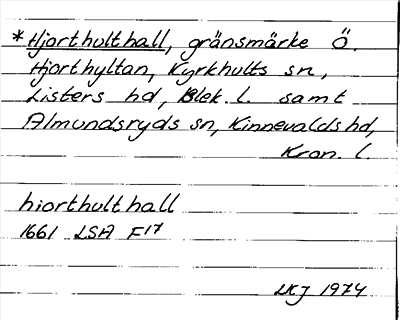 *Hjorthulthall, gränsmärke Ö.
Hjorthyltan, Kyrkhults sn,
Listers hd, Blek. l. samt
Almundsryds sn, Kinnevalds hd,
Kron. l.
hiorthulthall
1661 LSA F17
LKJ 1974